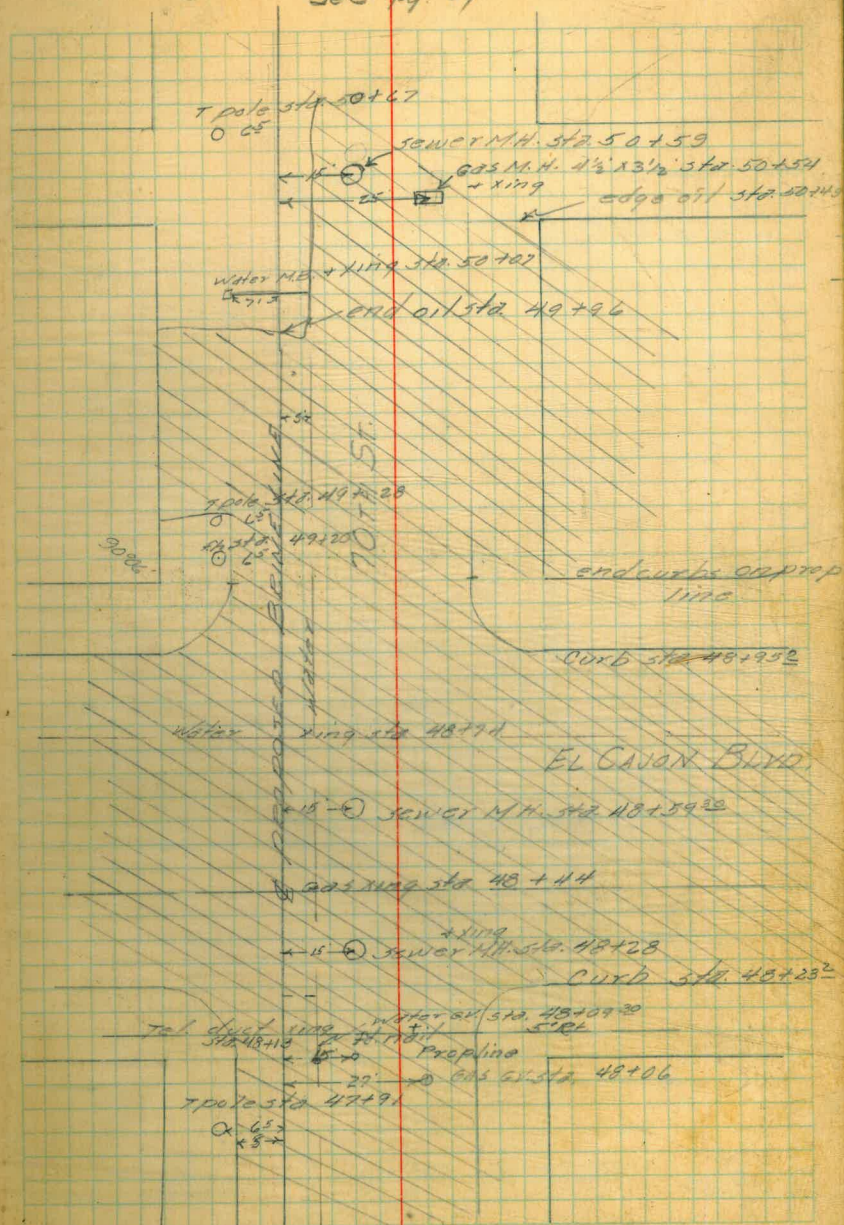 See pg.
T pole sta. 50+67
6⁵
sewer M.H. sta. 50+59
15'
Gas M.H. 4½' x 3½' sta. 50+54
+ xing
25'
edge oil sta. 50+43
Water M.B. + xing sta. 50+07
end oil sta 49+96
5'
70TH ST.
T pole sta. 49+28
6⁵
sta. 49+20
6⁵
PROPOSED BRINE LINE
Water
end curbs on prop
line
Curb sta 48+95⁰
Water xing sta 48+74
EL CAJON BLVD.
15' sewer M.H. sta 48+59³⁰
Gas xing sta 48+44
+ xing
15' sewer M.H. sta. 48+28
Curb sta. 48+23²
Water GV. sta. 48+09²⁰
5' Rt
Tel. duct xing
sta. 48+10
15'
Prop line
27' Gas GV. sta 48+06
T pole sta 47+91
6⁵
8'